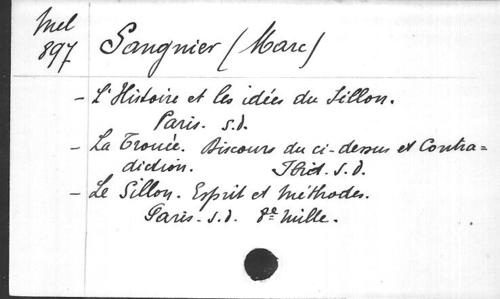 Mel
897
Sangnier (Marc)
- L'Histoire et les idées du Sillon.
Paris. s.d.
- La Trouée. Discours du ci-dessus et Contra=
diction. Ibid. s.d.
- Le Sillon. Esprit et méthodes.
Paris. s.d. 8e mille.